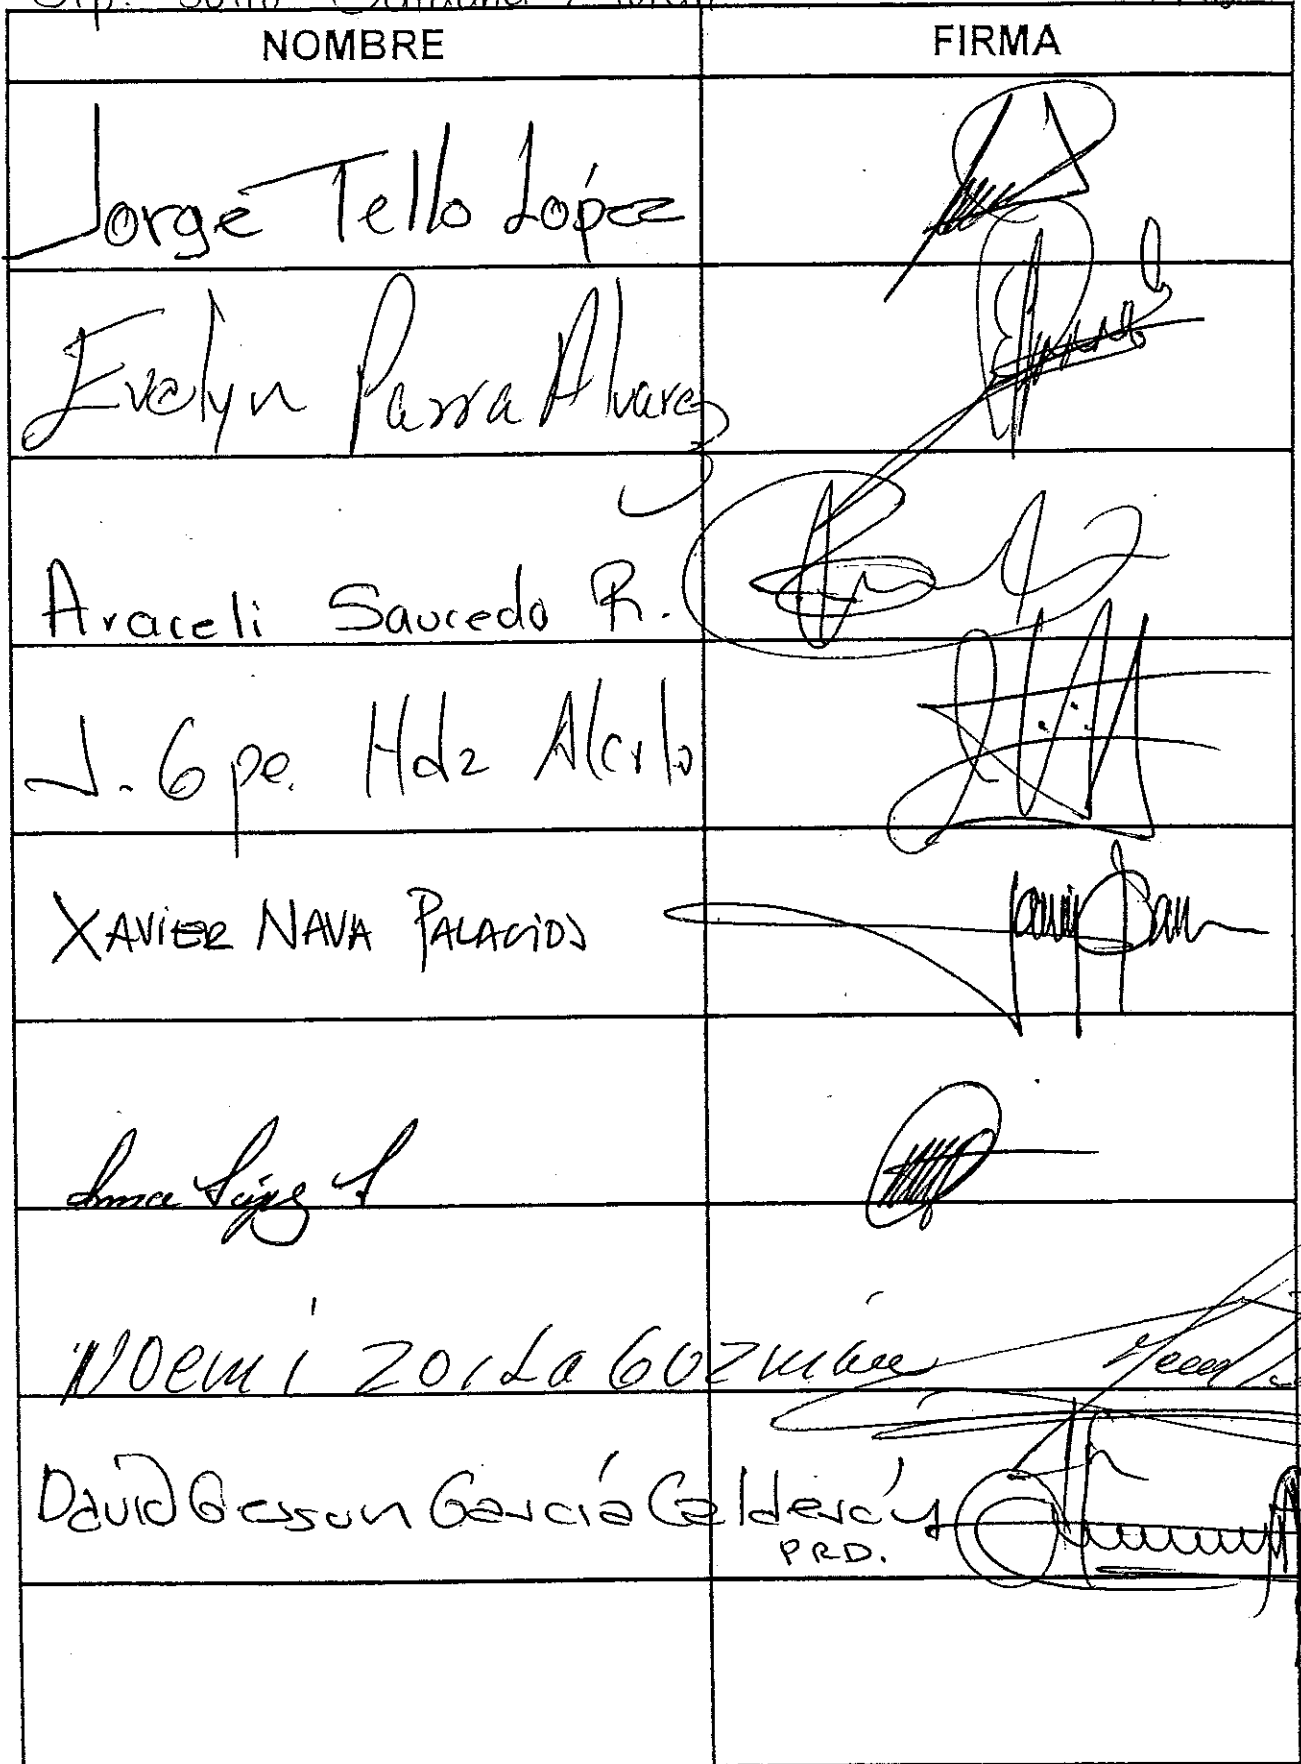 NOMBRE FIRMA
Jorge Tello López
Evelyn Parra Alvarez
Araceli Saucedo R.
J. Gpe. Hdz Alcalá
XAVIER NAVA PALACIOS
López S
Noemí Zoila Guzmán
David Gerson García Calderón
PRD.